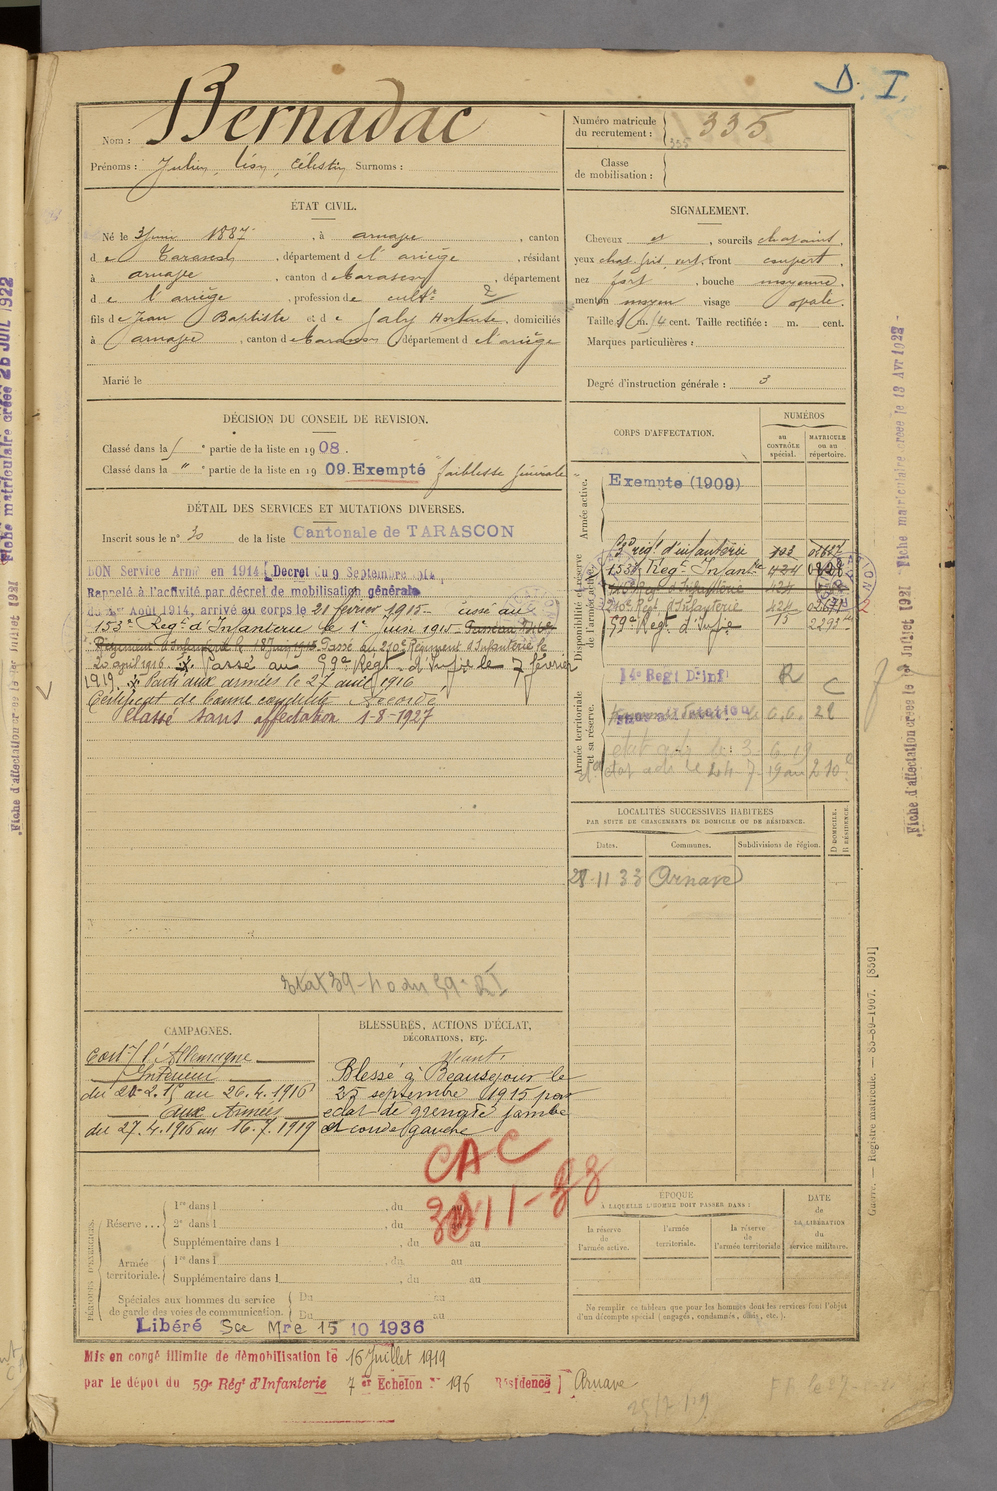 D. I.
Nom : Bernadac
Prénoms : Julien, Léon, Célestin Surnoms :
Numéro matricule du recrutement : 335
Classe de mobilisation :
ÉTAT CIVIL.
Né le 3 juin 1887, à Arnave, canton
de Tarascon, département de l'Ariège, résidant
à Arnave, canton de Tarascon, département
de l'Ariège, profession de cultr 2
fils de Jean Baptiste et de Galy Hortense, domiciliés
à Arnave, canton de Tarascon département de l'Ariège
Marié le
SIGNALEMENT.
Cheveux et, sourcils chatains,
yeux chat. gris vert, front couvert,
nez fort, bouche moyenne,
menton moyen visage ovale.
Taille 1 m. 54 cent. Taille rectifiée : m. cent.
Marques particulières :
Degré d'instruction générale : 3
DÉCISION DU CONSEIL DE REVISION.
Classé dans la 1e partie de la liste en 1908.
Classé dans la " e partie de la liste en 1909. Exempté faiblesse générale
DÉTAIL DES SERVICES ET MUTATIONS DIVERSES.
Inscrit sous le n° 20 de la liste Cantonale de TARASCON
BON Service Armé en 1914 (Décret du 9 Septembre 1914)
Rappelé à l'activité par décret de mobilisation générale
du 1er Août 1914, arrivé au corps le 20 février 1915 — passé au
153e Regt d'Infanterie le 1er Juin 1915
Régiment d'Infanterie le Passé au 210e Régiment d'Infanterie le
20 avril 1916. Passé au 59e Regt d'Infie le 7 février
1919. Parti aux armées le 27 avril 1916
Certificat de bonne conduite Accordé
Classé sans affectation 1-8-1927
CORPS D'AFFECTATION.
NUMÉROS
au CONTRÔLE spécial.
MATRICULE ou au répertoire.
Armée active.
Exempte (1909)
Disponibilité et réserve de l'armée active.
regt d'infanterie
153e Regt Infante
210e Régt d'Infanterie 424
59e Regt d'Infie 15
Armée territoriale et sa réserve.
14e Regt D'inf R
sans affectation
LOCALITÉS SUCCESSIVES HABITÉES
PAR SUITE DE CHANGEMENTS DE DOMICILE OU DE RÉSIDENCE.
Dates.
Communes.
Subdivisions de région.
D DOMICILE.
R RÉSIDENCE.
28-11 33 Arnave
CAMPAGNES.
Contre l'Allemagne
Intérieur
du 20-2.15 au 26.4.1916
aux Armées
du 27.4.1916 au 16.7.1919
BLESSURES, ACTIONS D'ÉCLAT,
DÉCORATIONS, ETC.
Néant.
Blessé à Beausejour le
25 septembre 1915 par
eclat de grenade jambe
et coude gauche
CAC
PÉRIODES D'EXERCICES.
Réserve ...
1re dans l , du au
2e dans l , du au
Supplémentaire dans l , du au
Armée territoriale.
1re dans l , du au
Supplémentaire dans l , du au
Spéciales aux hommes du service
de garde des voies de communication.
Du au
Du au
Libéré Sce Mre 15 10 1936
ÉPOQUE
À LAQUELLE L'HOMME DOIT PASSER DANS :
la réserve de l'armée active.
l'armée territoriale.
la réserve de l'armée territoriale.
DATE de LA LIBÉRATION du service militaire.
Ne remplir ce tableau que pour les hommes dont les services font l'objet
d'un décompte spécial (engagés, condamnés, omis, etc.).
Mis en congé illimité de démobilisation le 16 Juillet 1919
par le dépôt du 59e Régt d'Infanterie 7 e Echelon N° 196 Résidence Arnave
Guerre. — Registre matricule. — 85-89-1907. [8591]
Fiche d'affectation créée le 1er Juillet 1921 Fiche matriculaire créée le 13 Avr 1922
Fiche d'affectation créée le 1er Juillet 1921 Fiche matriculaire créée 26 JUIL 1922